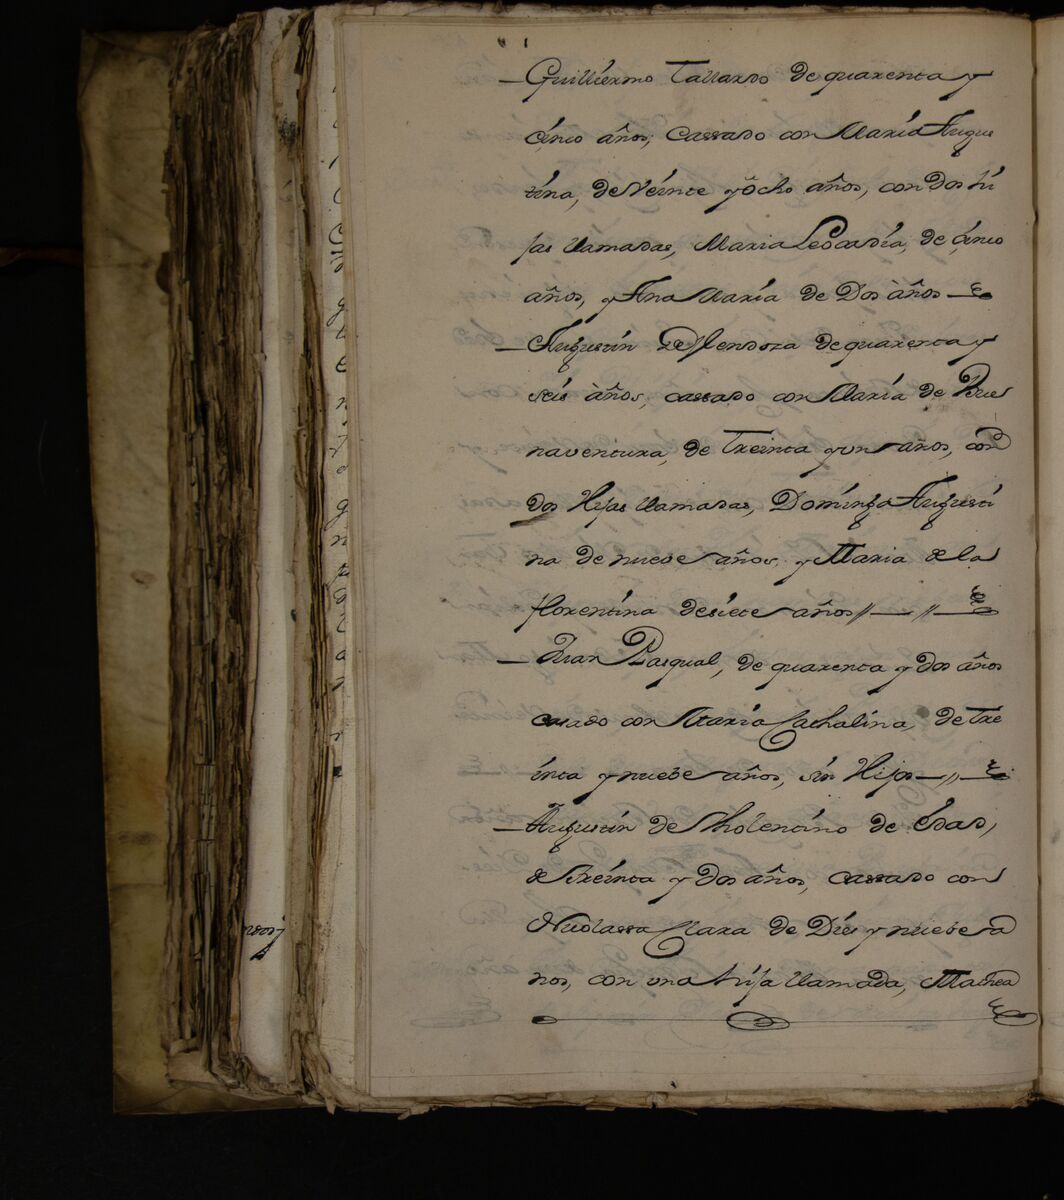 — Guilliermo Tallardo de quarenta y
çinco años, cassado con María Augus
tina, de Veinte y ocho años, con dos hi
jas llamadas, Maria Leocadia, de çinco
años, y Ana María de Dos años —
— Augustín de Mendoza de quarenta y
seis años, cassado con María de Bue
naventura, de Treinta y un años, con
dos Hijas llamadas, Dominga Augusti
na de nueve años, y Maria de la
florentina de siete años // — // —
— Juan Pasqual, de quarenta y dos años
casado con María Cathalina, de Tre
inta y nueve años, sin Hijos — // —
— Augustín de Tholentino de Edad,
de treinta y dos años, cassado con
Nicolassa Clara de Diez y nueve a
ños, con una hija llamada, Mathea